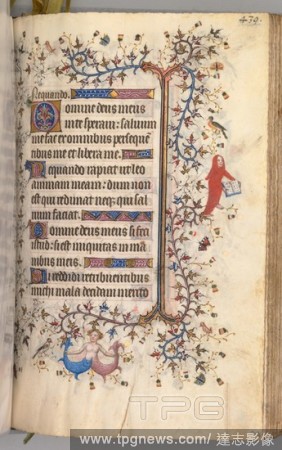 479.
Nequando.
Domine deus meus
in te speravi: salvum
me fac ex omnibus perseque(n)
tibus me et libera me.
Nequando rapiat ut leo
animam meam: dum non
est qui redimat neq; qui sal
vum faciat.
Domine deus meus si feci
istud: si est iniquitas in ma
nibus meis.
Si reddidi retribuentibus
michi mala decidam merito
TPG
www.tpgnews.com/達志影像